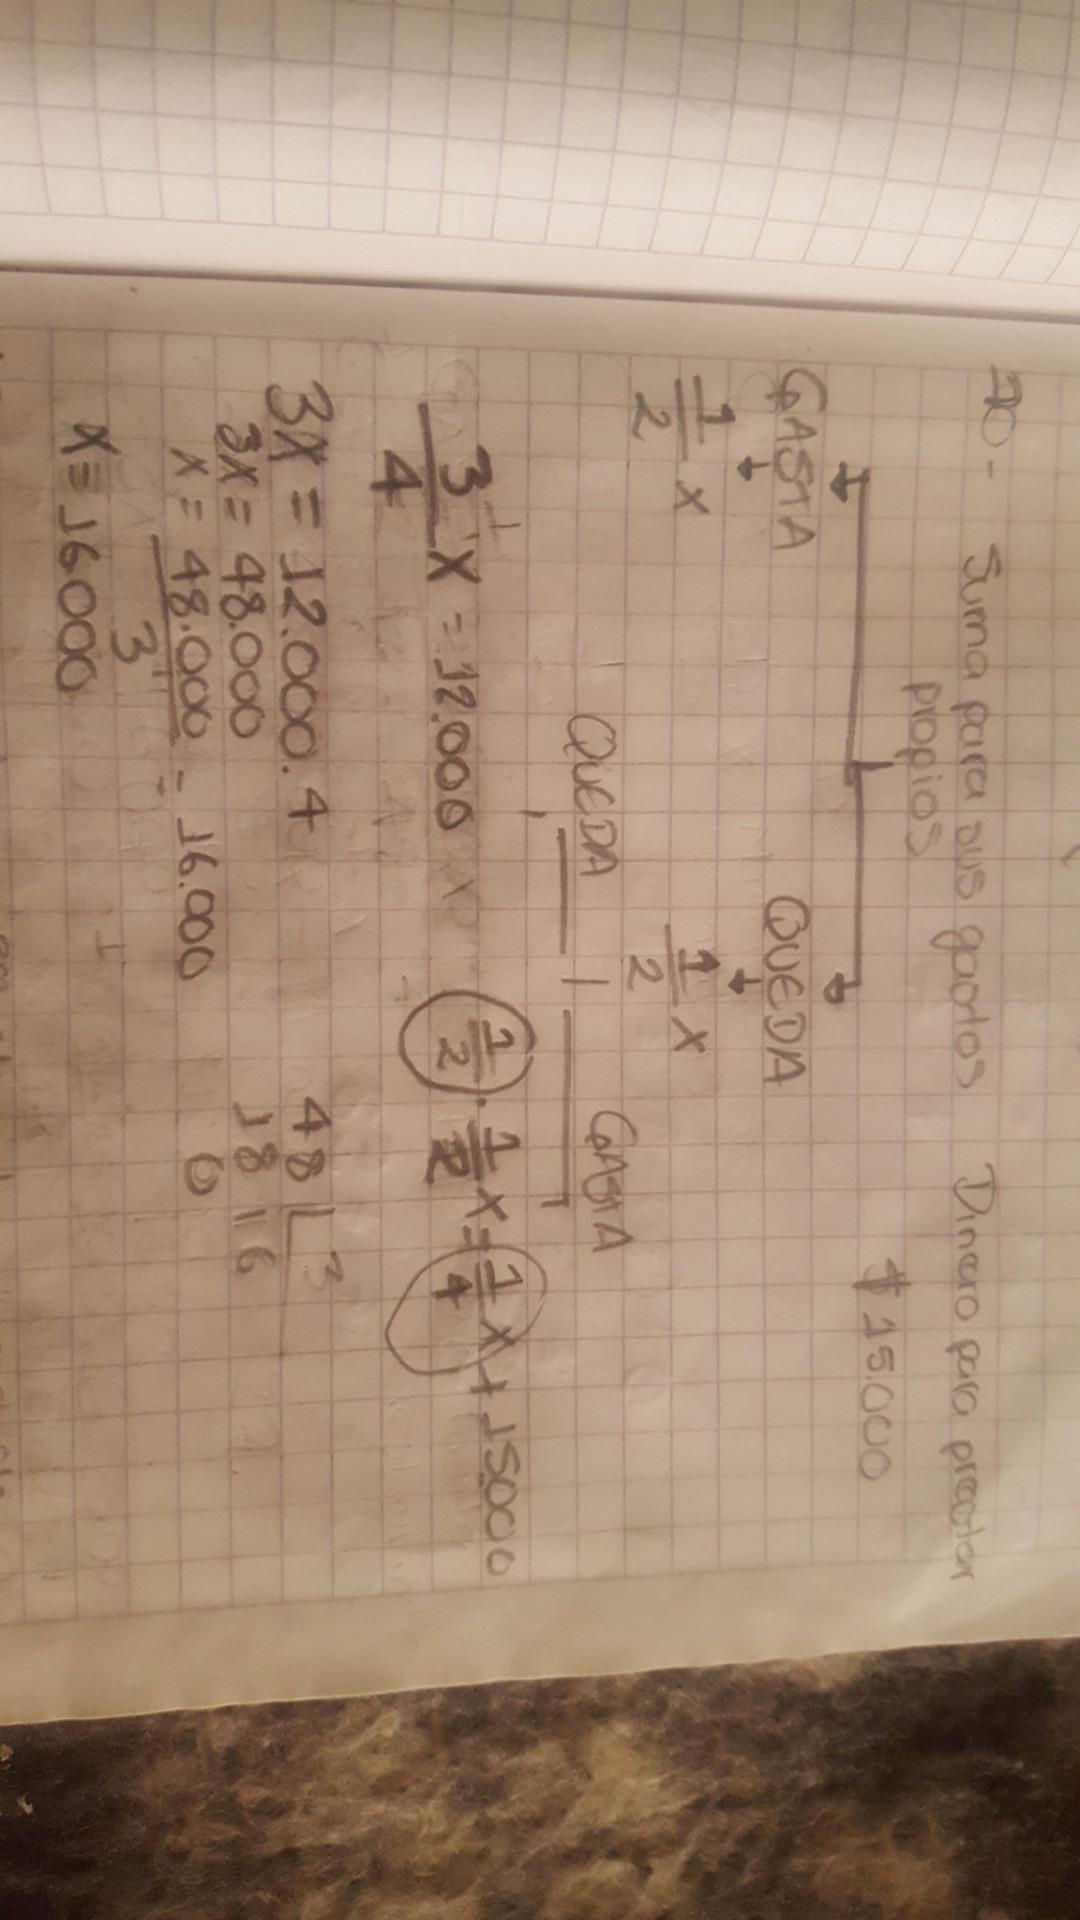 10- Suma para sus gastos Dinero para prestar
propios $ 15.000
GASTA QUEDA
1/2 x 1/2 x
QUEDA GASTA
3/4 x = 12.000 1/2 · 1/2 x = 1/4 x + 15000
3x = 12.000.4 48 | 3
3x = 48.000 18 16
x = 48.000/3 = 16.000 0
x = 16000